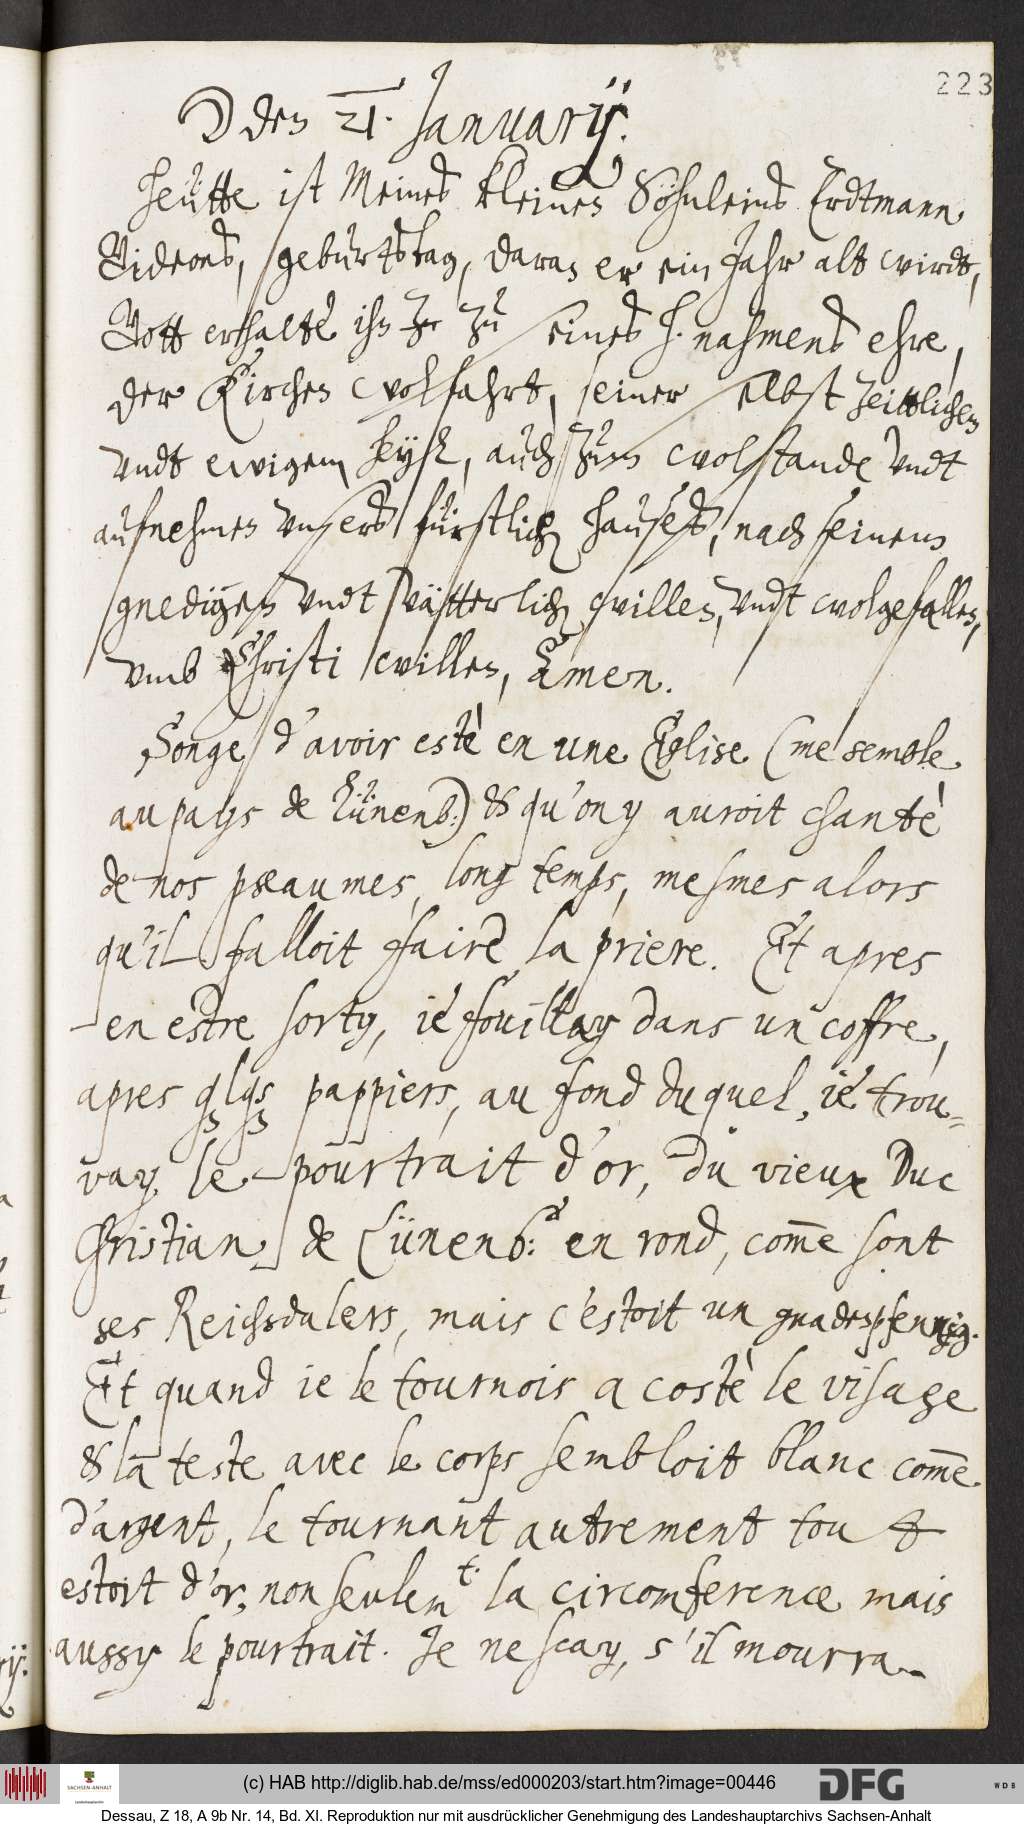 223
☽ den 21. Januarij.
Heütte ist Meines kleinen Söhnleins Erdtmann
Gideons, geburtstag, daran er ein Jahr alt wirdt,
Gott erhalte ihn zu seines h. nahmens ehre,
der Kirchen wolfahrt, seiner selbst zeittlichen
undt ewigem heyl, auch zum wolstande undt
aufnehmen unsers fürstlichen hauses, nach seinem
gnedigen undt vätterlichen willen, undt wolgefallen,
umb Christi willen, Amen.
Songe d'avoir estè en une Eglise (me semble
au pays de Lünenb:) & qu'on y auroit chantè
de nos pseaumes, long temps, mesmes alors
qu'il falloit faire la priere. Et apres
en estre sorty, ie fouillay dans un coffre,
apres qlqs pappiers, au fond duquel, ie trou-
vay le pourtrait d'or, du vieux Duc
Christian de Lünenb: en rond, com̄e sont
ses Reichsdalers, mais c'estoit un gnadenpfennig.
Et quand ie le tournois a costè le visage
& la teste avec le corps sembloit blanc com̄e
d'argent, le tournant autrement tout
estoit d'or, non seulemt. la circomference mais
aussy le pourtrait. Je ne sçay, s'il mourra
(c) HAB http://diglib.hab.de/mss/ed000203/start.htm?image=00446
DFG
WDB
SACHSEN-ANHALT
Dessau, Z 18, A 9b Nr. 14, Bd. XI. Reproduktion nur mit ausdrücklicher Genehmigung des Landeshauptarchivs Sachsen-Anhalt